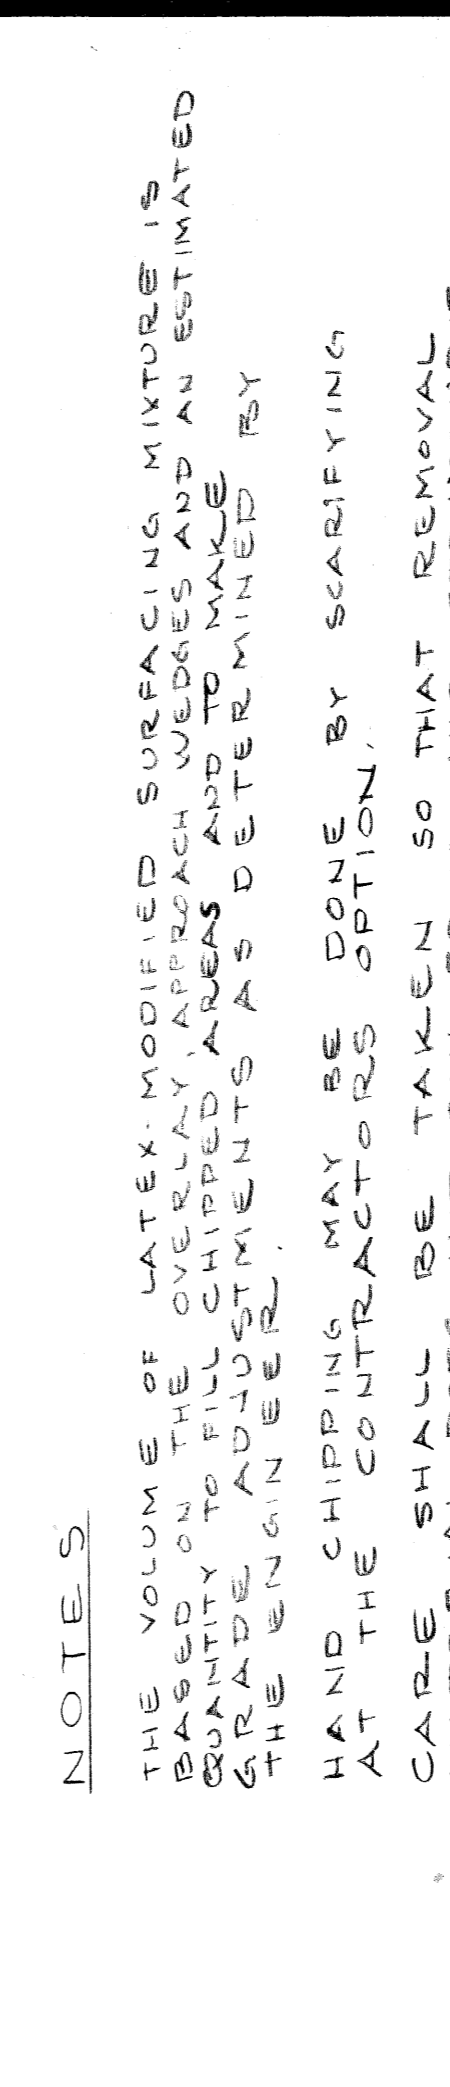 NOTES
THE VOLUME OF LATEX-MODIFIED SURFACING MIXTURE IS
BASED ON THE OVERLAY, APPROACH WEDGES AND AN ESTIMATED
QUANTITY TO FILL CHIPPED AREAS AND TO MAKE
GRADE ADJUSTMENTS AS DETERMINED BY
THE ENGINEER.
HAND CHIPPING MAY BE DONE BY SCARIFYING
AT THE CONTRACTORS OPTION.
CARE SHALL BE TAKEN SO THAT REMOVAL